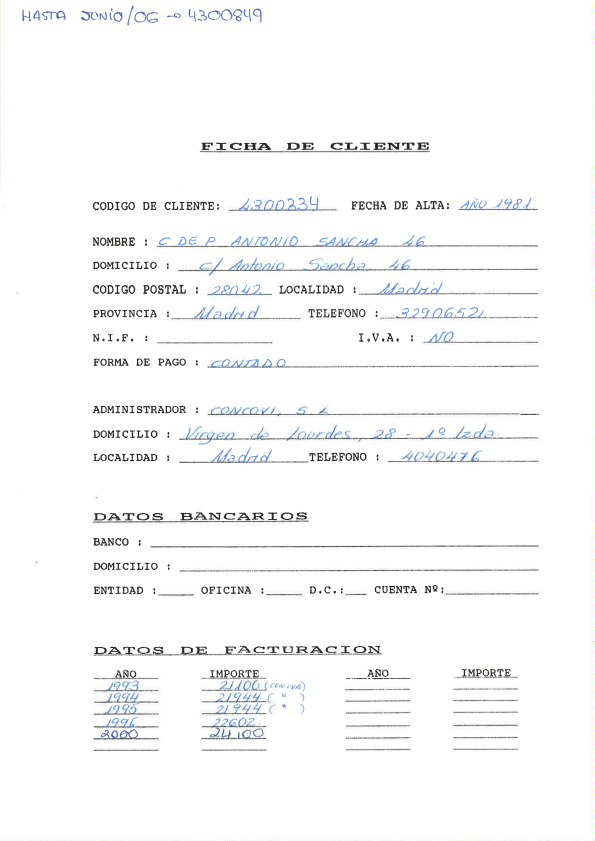 HASTA JUNIO/06 → 4300849
FICHA DE CLIENTE
CODIGO DE CLIENTE: 4300234 FECHA DE ALTA: AÑO 1981
NOMBRE : C DE P. ANTONIO SANCHA 46
DOMICILIO : c/ Antonio Sancha, 46
CODIGO POSTAL : 28042 LOCALIDAD : Madrid
PROVINCIA : Madrid TELEFONO : 3290652
N.I.F. : I.V.A. : NO
FORMA DE PAGO : CONTADO
ADMINISTRADOR : CONCOVI, S L
DOMICILIO : Virgen de Lourdes, 28 - 1º Izda.
LOCALIDAD : Madrid TELEFONO : 4040476
DATOS BANCARIOS
BANCO :
DOMICILIO :
ENTIDAD : OFICINA : D.C.: CUENTA Nº:
DATOS DE FACTURACION
AÑO IMPORTE AÑO IMPORTE
1993 21100 (CON IVA)
1994 21944 ( " )
1995 21944 ( " )
1996 22602.
2000 24.100